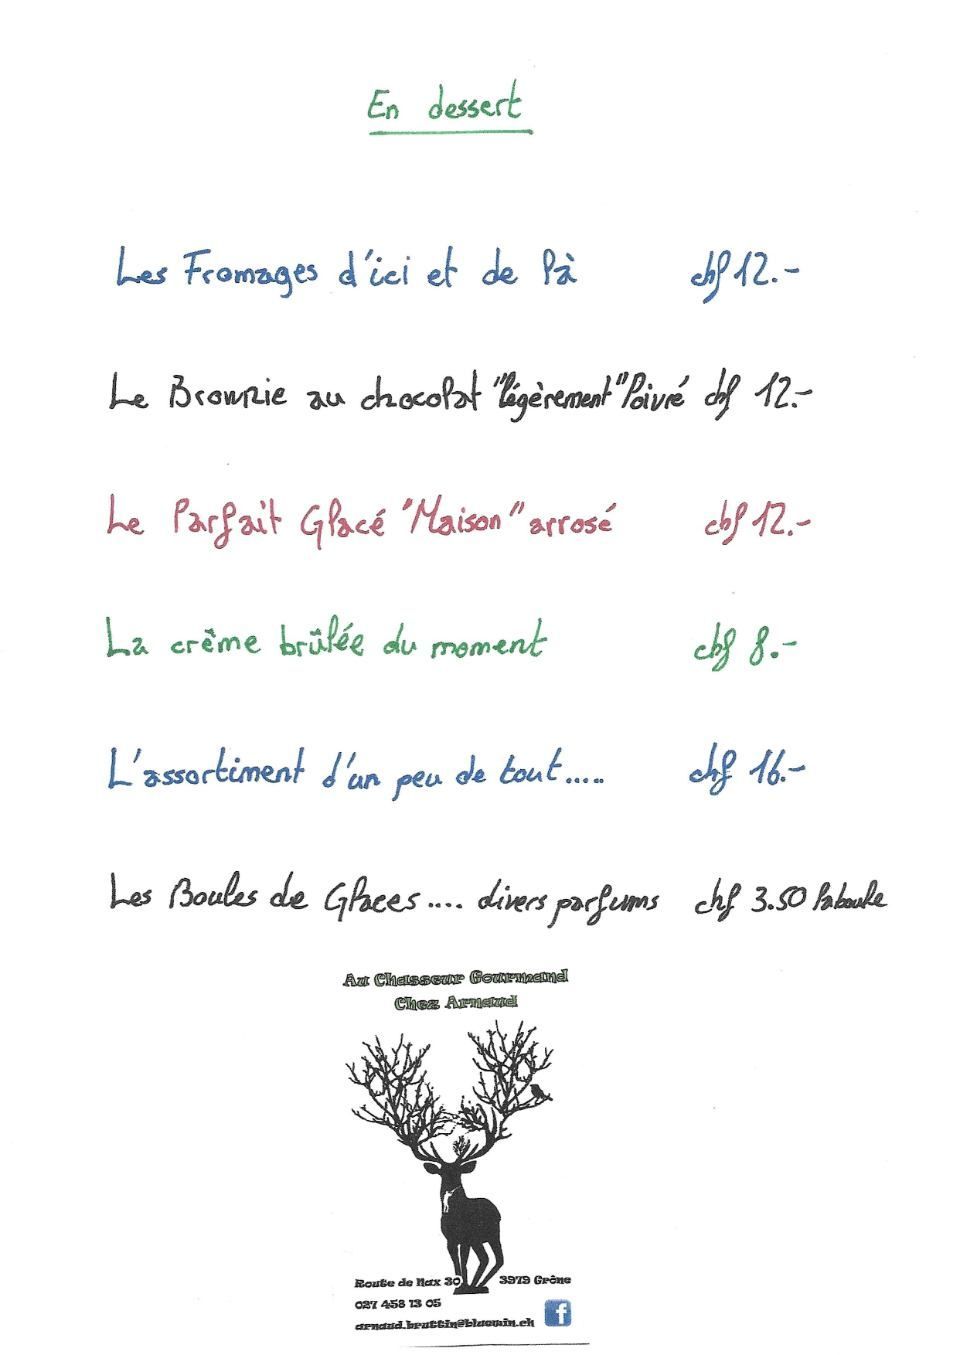 En dessert
Les Fromages d'ici et de là chf 12.-
Le Brownie au chocolat "légèrement" Poivré chf 12.-
Le Parfait Glacé "Maison" arrosé chf 12.-
La crème brûlée du moment chf 8.-
L'assortiment d'un peu de tout..... chf 16.-
Les Boules de Glaces.... divers parfums chf 3.50 la boule
Au Chasseur Gourmand
Chez Arnaud
Route de Nax 30 3979 Grône
027 458 13 05
arnaud.bruttin@bluewin.ch f